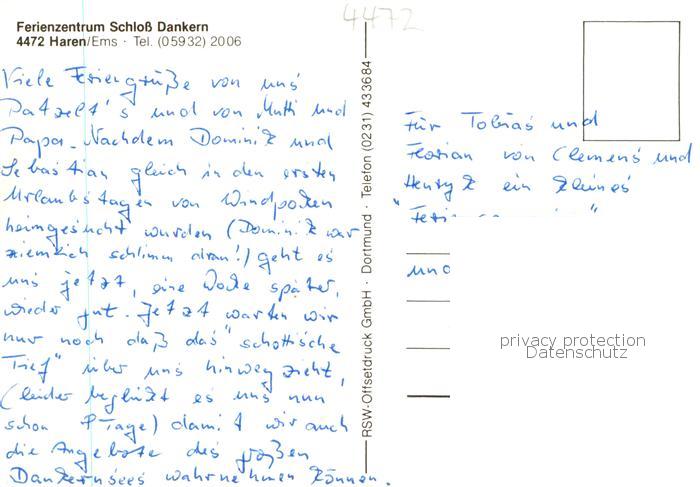 4472
Ferienzentrum Schloß Dankern
4472 Haren/Ems · Tel. (05932) 2006
Viele Feriengrüße von uns
Patzelt's und von Mutti und
Papa. Nachdem Dominik und
Sebastian gleich in den ersten
Urlaubstagen von Windpocken
heimgesucht wurden (Dominik war
ziemlich schlimm dran!) geht es
uns jetzt, eine Woche später,
wieder gut. Jetzt warten wir
nur noch daß das "schottische
Tief" über uns hinweg zieht,
(leider beglückt es uns nun
schon 8 Tage) damit wir auch
die Angebote des großen
Dankernsees wahrnehmen können.
RSW-Offsetdruck GmbH · Dortmund · Telefon (0231) 433684
Für Tobias und
Florian von Clemens und
Henryk ein kleines
und
privacy protection
Datenschutz